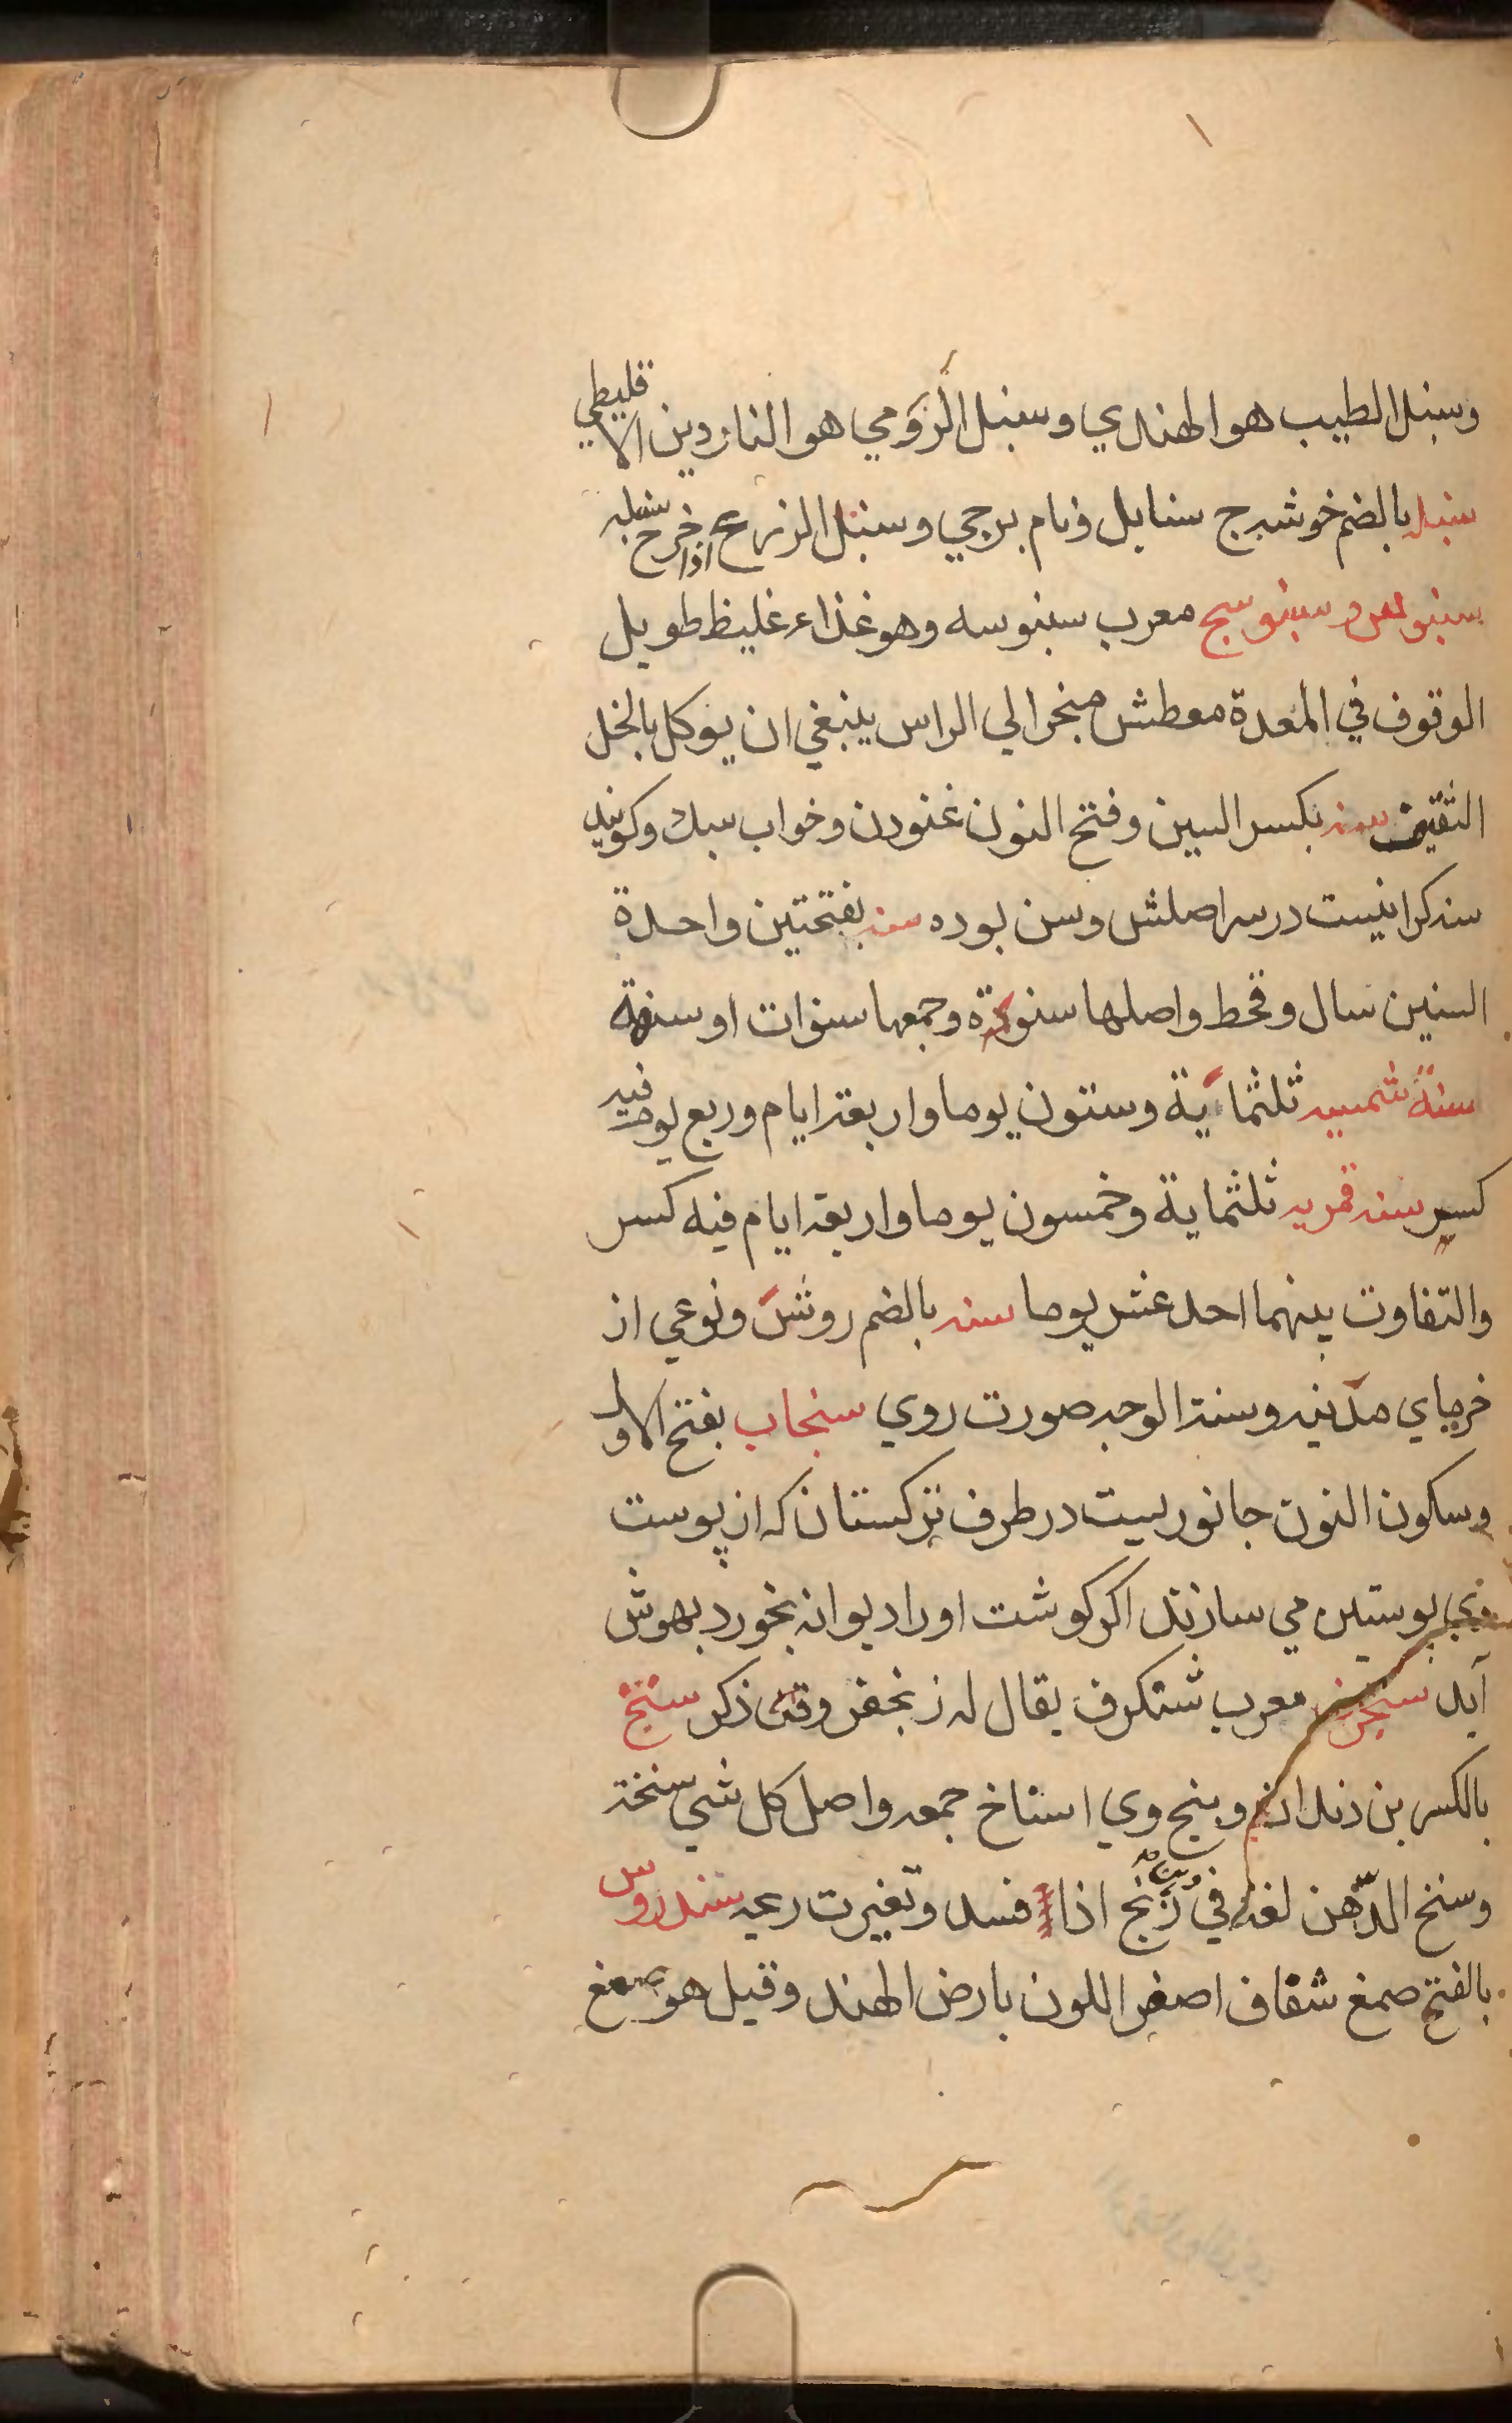 وسنبل الطيب هو الهندي وسنبل الرَّومي هو الناردين الاقليطي
سنبله بالضم خوشه ج سنابل ونام برجي وسنبل الزرع اذا خرج سنبله
سنبوسق وسنبوسج معرب سنبوسه وهو غذاء غليظ طويل
الوقوف في المعدة معطش مبخر الي الراس ينبغي ان يوكل بالخل
الثقيف سنه بكسر السين وفتح النون غنودن وخواب سبك وكويند
سنه كرانيست در سر اصلش وسن بوده سنه بفتحتين واحدة
السنين سال وقحط واصلها سنوة وجمعها سنوات او سنهة
سنةً شمسيه ثلثمائية وستون يوما واربعة ايام وربع يوم فيه
كسر سنه قمريه ثلثماية وخمسون يوما واربعة ايام فيه كسر
والتفاوت بينهما احد عشر يوما سنه بالضم روش ونوعي از
خرماي مدينه وسنة الوجه صورت روي سنجاب بفتح الاول
وسكون النون جانوريست در طرف تركستان كه از پوست
وي پوستين مي سازند اكر كوشت او را ديوانه بخورد بهوش
آيد سنجرف معرب شنكرف يقال له زنجفر وقد ذكر سنخ
بالكسر بن دندان وبيخ وي اسناخ جمعه واصل كل شي سنخة
وسنخ الدّهن لغة في زنخ اذا فسد وتغيرت ريحه سندروس
بالفتح صمغ شفاف اصفر اللون بارض الهند وقيل هو صمغ